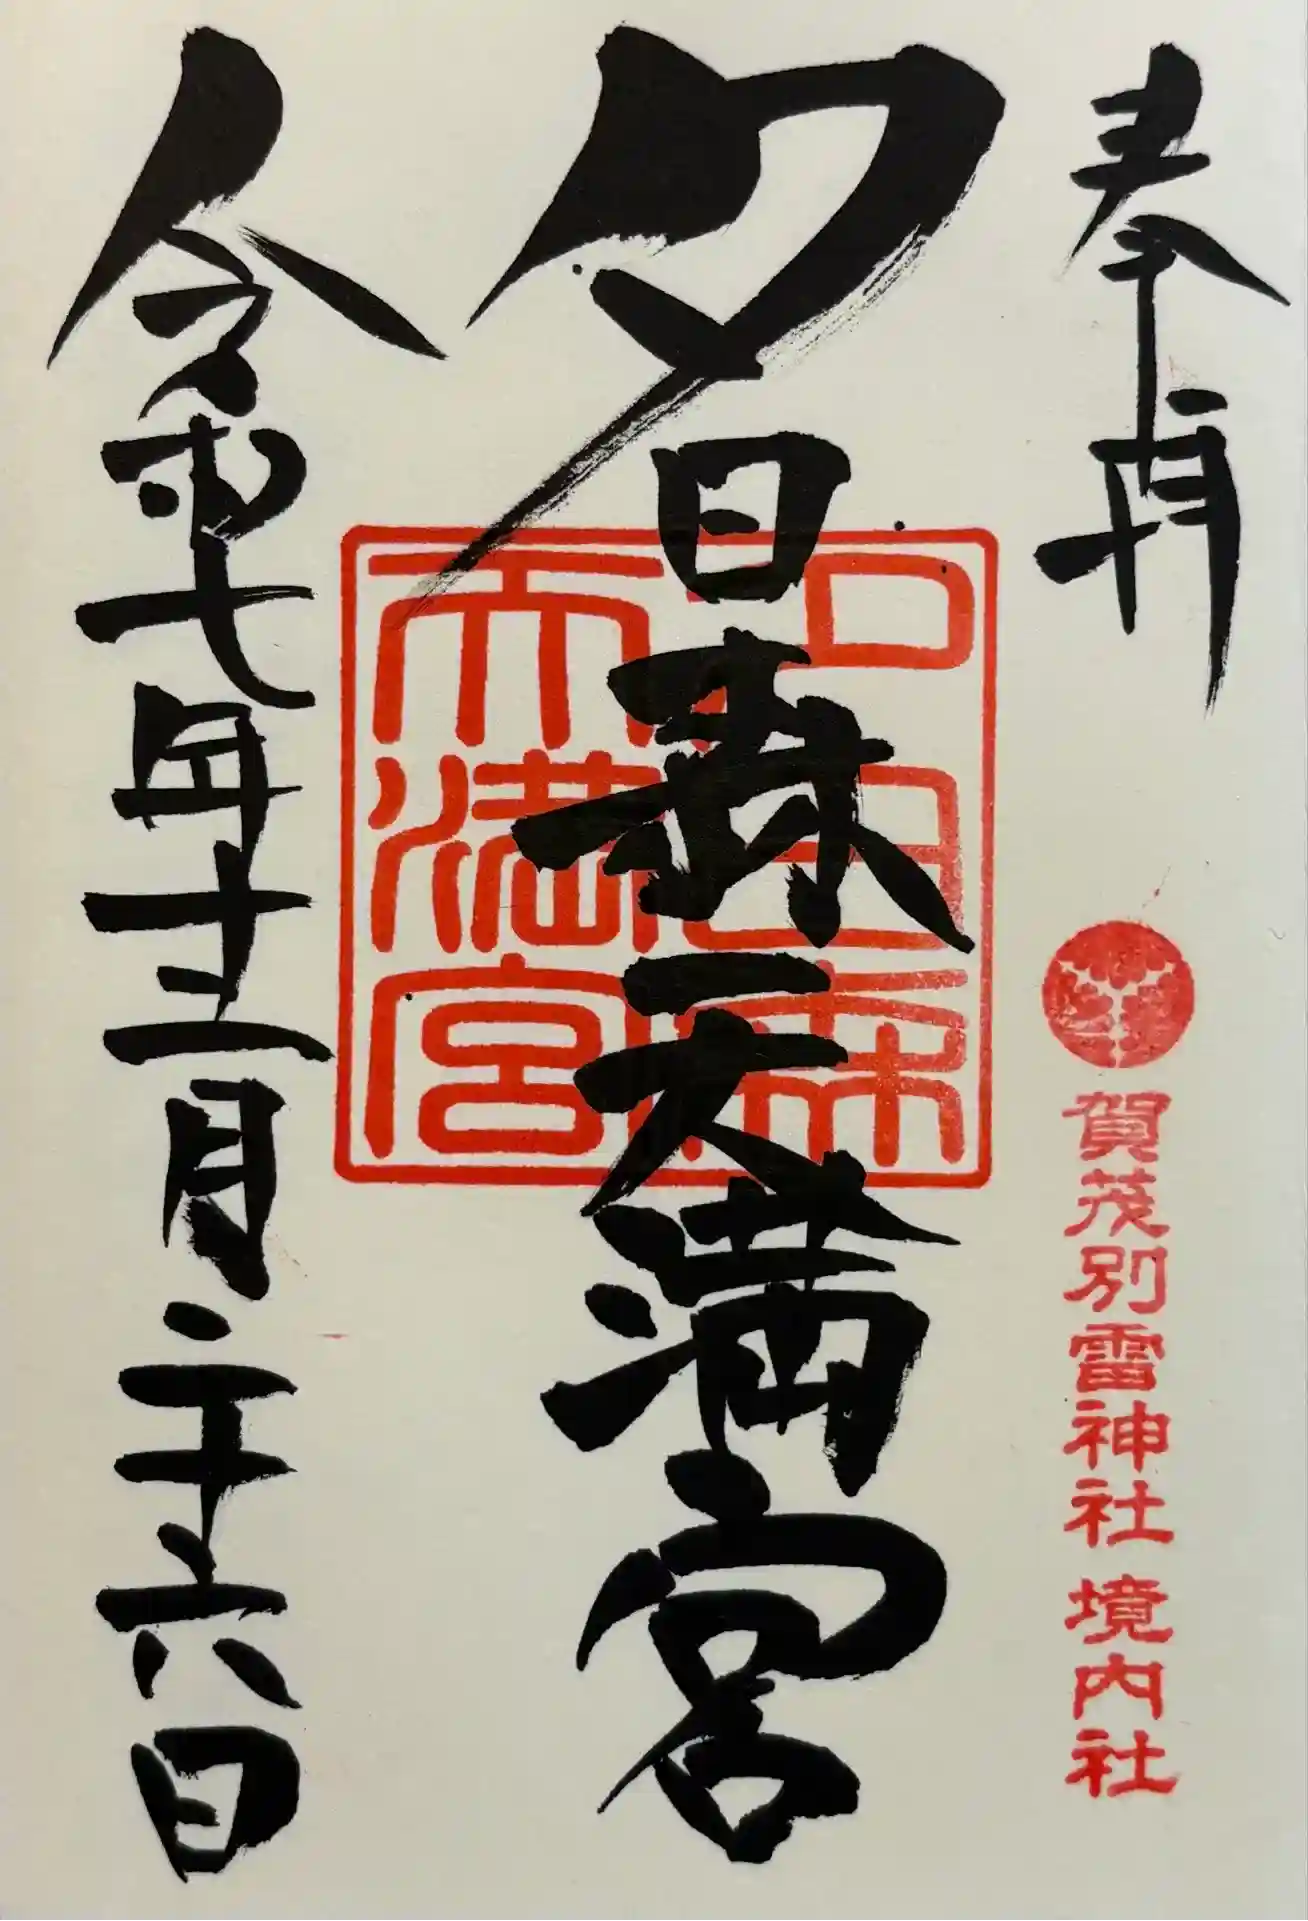 奉拝
賀茂別雷神社 境内社
夕日森天満宮
夕日森
天満宮
令和七年十二月二十六日